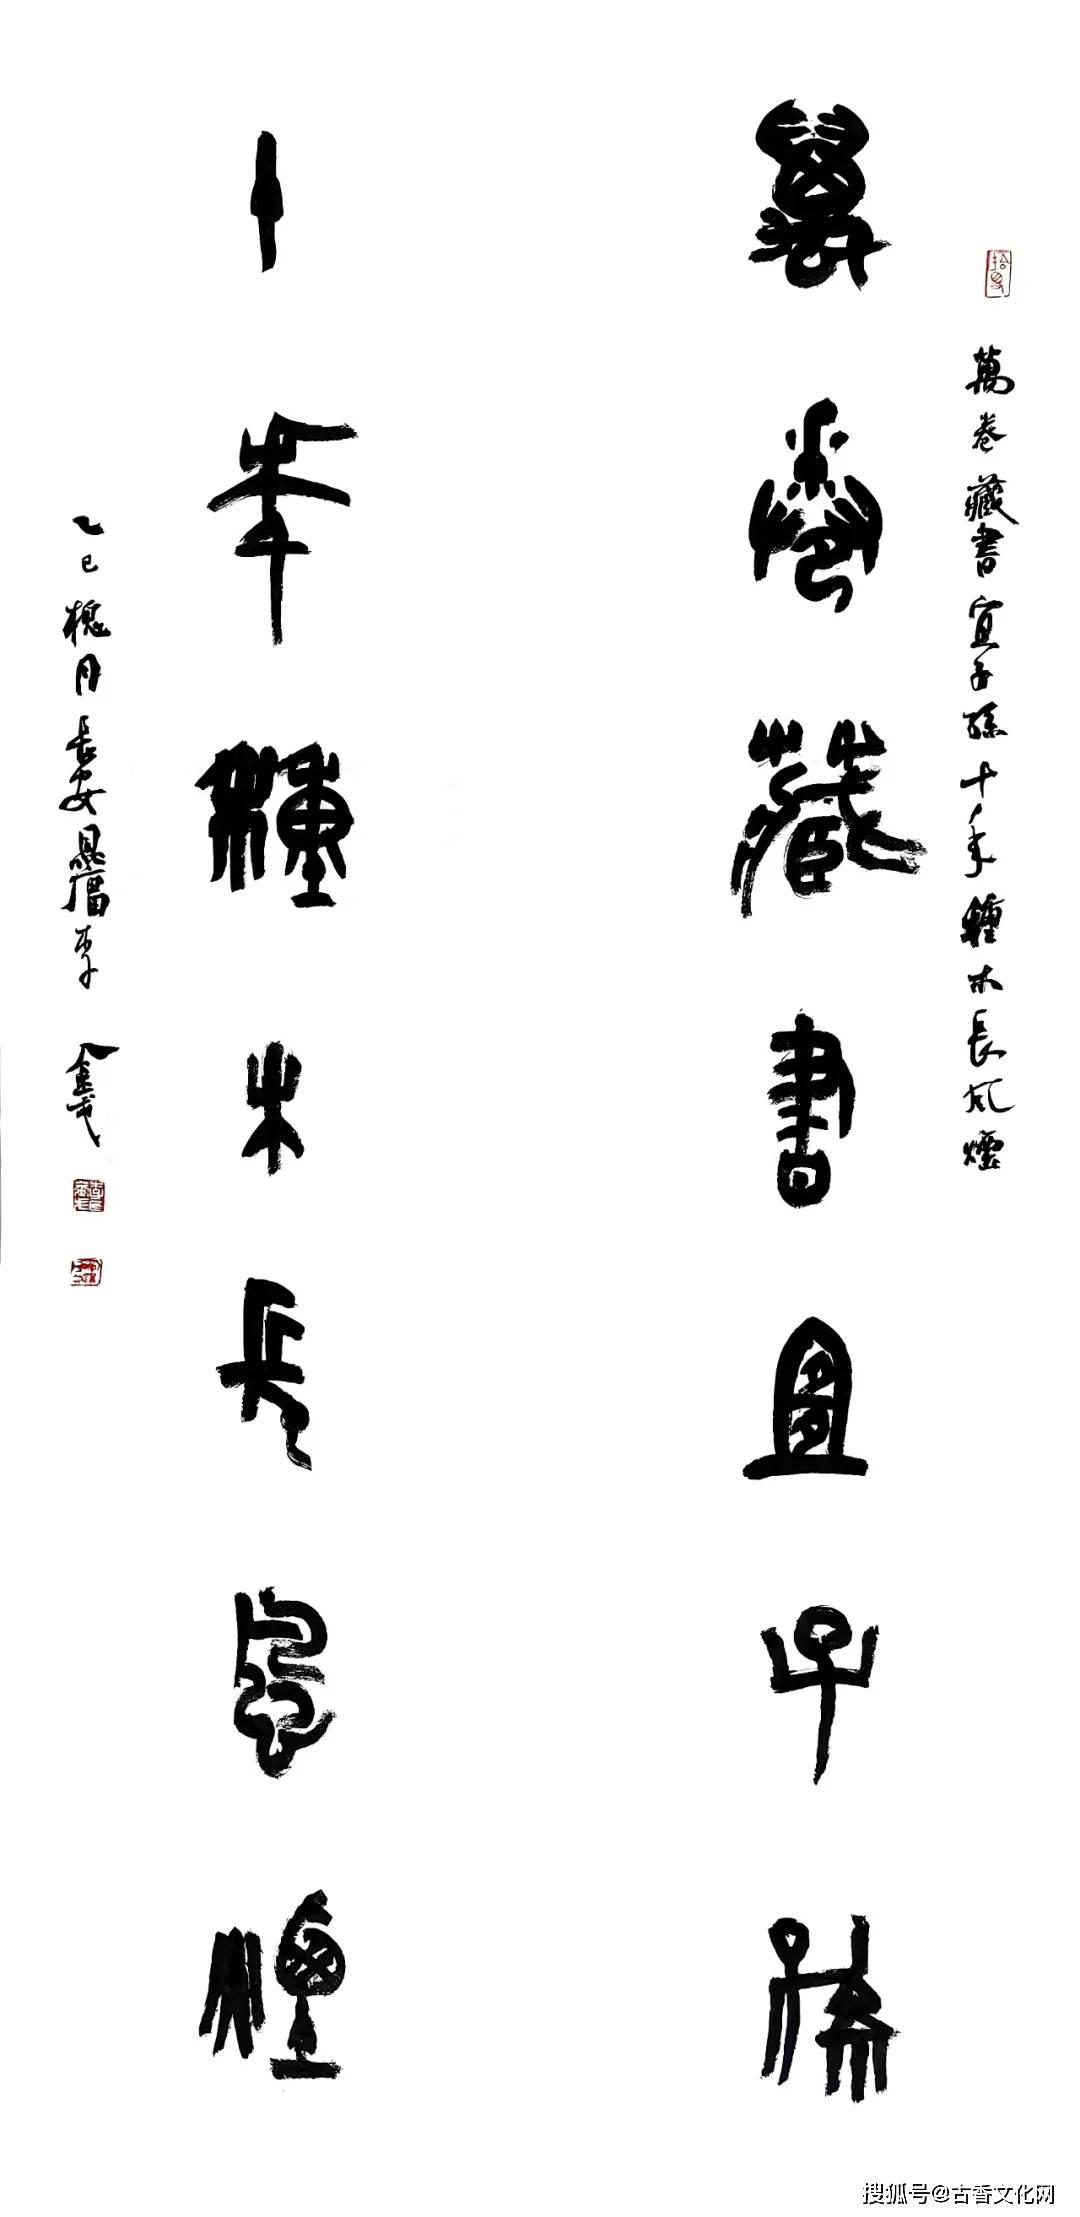 萬卷藏書宜子孫十年種木長風煙
萬卷藏書宜子孫
十年種木長風煙
乙巳槐月長安
李金戈
搜狐号@古香文化网